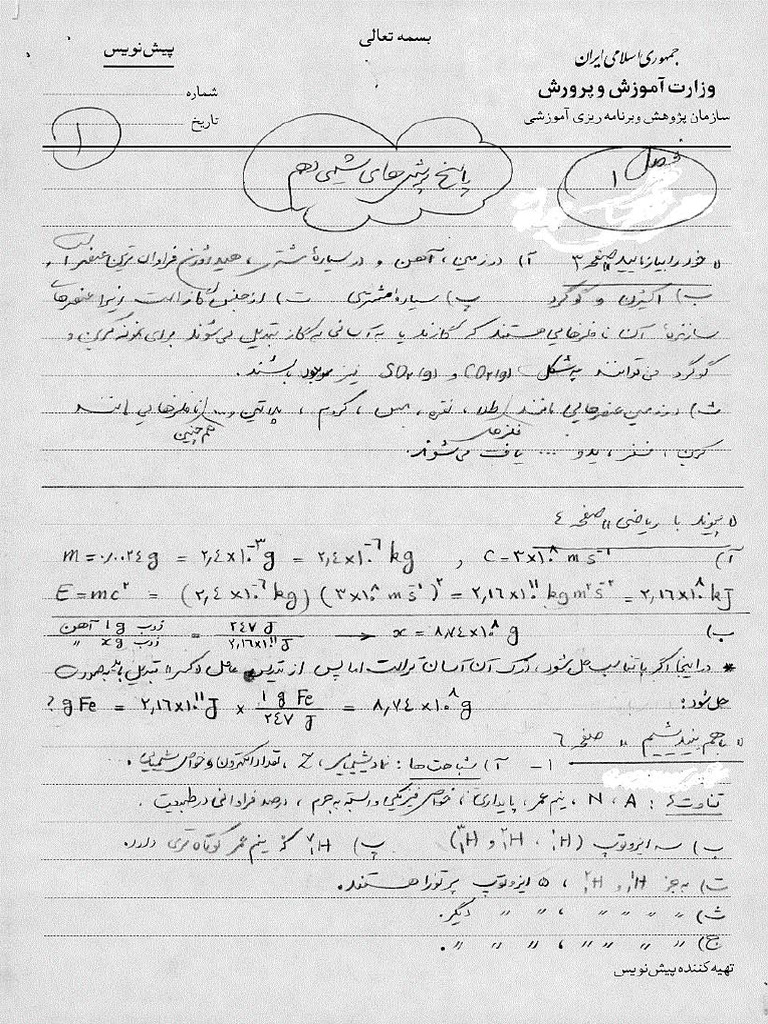 بسمه تعالی
جمهوری اسلامی ایران
وزارت آموزش و پرورش
سازمان پژوهش و برنامه ریزی آموزشی
پیش‌نویس
شماره
تاریخ
۱
پاسخ پرسش های شیمی دهم
فصل ۱
« خود را بیازمایید صفحه ۳ آ) در زمین، آهن و در سیارهٔ مشتری، هیدروژن فراوان ترین عنصر است.
ب) اکسیژن و گوگرد پ) سیاره مشتری ت) از جنس گاز است زیرا عنصرهای
سازندهٔ آن نافلزهایی هستند که گازند یا به آسانی به گاز تبدیل می‌شوند برای نمونه کربن و
گوگرد می‌توانند به شکل CO۲(g) و SO۲(g) نیز موجود باشند.
ث) در زمین عنصرهایی مانند طلا، نقره، مس، کروم، پلاتین و... نافلزهایی مانند
فلزهای همچنین
کربن، فسفر، ید و ... یافت می‌شوند.
« پیوند با ریاضی » صفحه ٤
آ) m = ۰/۰۰۲٤ g = ۲,٤×۱۰⁻³ g = ۲,٤×۱۰⁻⁶ kg , C = ۳×۱۰⁸ m s⁻¹
E = mc² = (۲,٤×۱۰⁻⁶ kg) (۳×۱۰⁸ m s⁻¹)² = ۲,۱۶×۱۰¹¹ kg m² s⁻² = ۲,۱۶×۱۰⁸ kJ
ب) ذوب ۱g آهن / ذوب xg " = ۲٤۷ J / ۲,۱۶×۱۰¹¹ J → x = ۸,۷٤×۱۰⁸ g
* در اینجا اگر با تناسب حل شود، درک آن آسان تر است اما پس از تدریس عامل های تبدیل باید به صورت
حل شود:
? g Fe = ۲,۱۶×۱۰¹¹ J × ۱ g Fe / ۲٤۷ J = ۸,۷٤×۱۰⁸ g
« با هم بیندیشیم » صفحه ۶
۱- آ) شباهت ها: نماد شیمیایی، Z، تعداد الکترون و خواص شیمیایی.
تفاوت ها: A، N، نیم عمر، پایداری، خواص فیزیکی وابسته به جرم، درصد فراوانی در طبیعت.
ب) سه ایزوتوپ (¹₁H، ²₁H و ³₁H) پ) ⁷₁H که نیم عمر کوتاه تری دارد.
ت) به جز ¹₁H و ²₁H، ۵ ایزوتوپ پرتوزا هستند.
ث) " " " " " ، " " " دیگر.
ج) " " " " " ، " " ".
تهیه کننده پیش نویس